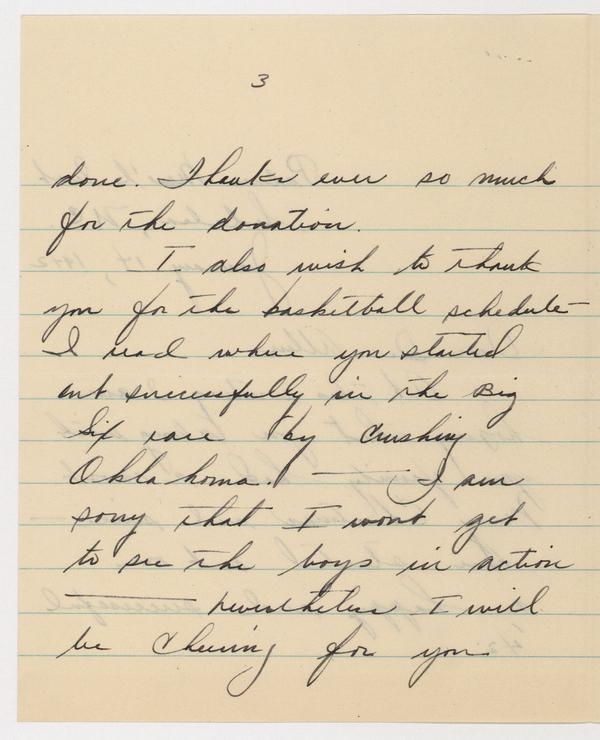 3
done. Thanks ever so much
for the donation.
I also wish to thank
you for the basketball schedule—
I read where you started
out successfully in the Big
Six race by crushing
Oklahoma. — I am
sorry that I wont get
to see the boys in action
— nevertheless I will
be cheering for you